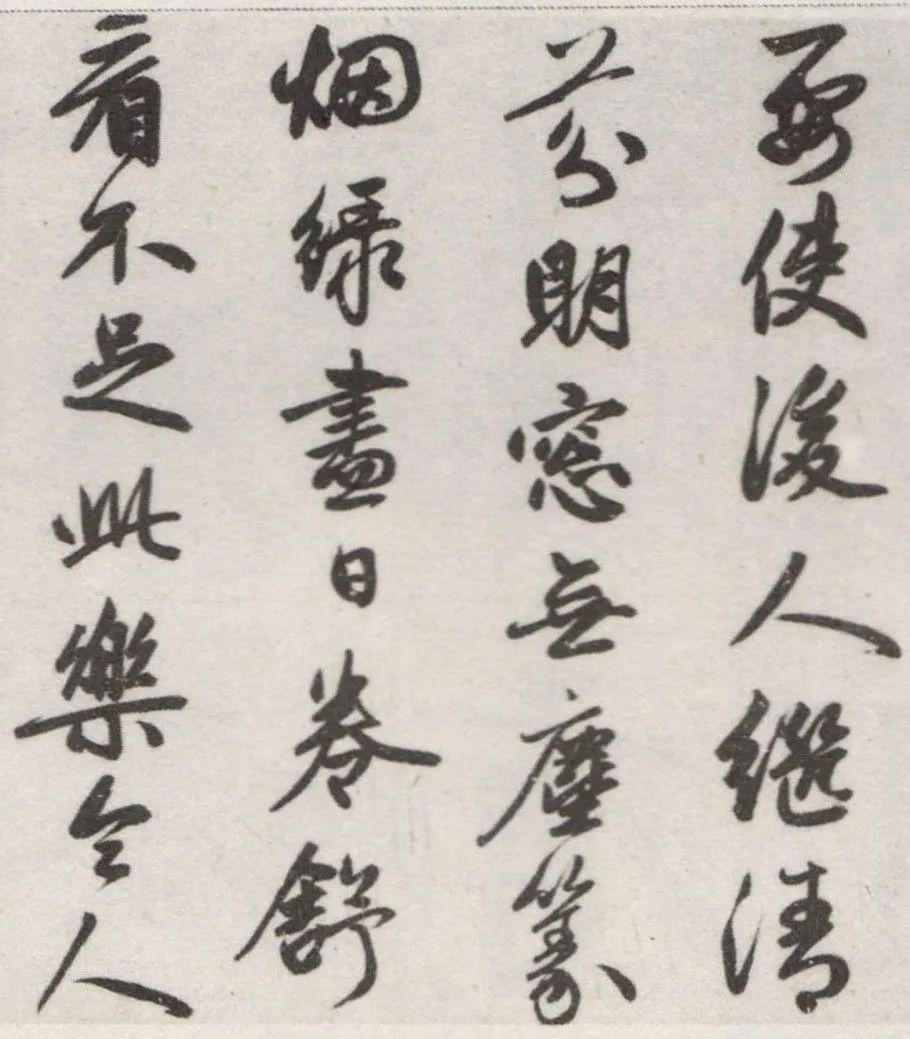 要使後人繼清
芬明窓無塵篆
烟綠盡日卷舒
看不足此樂令人